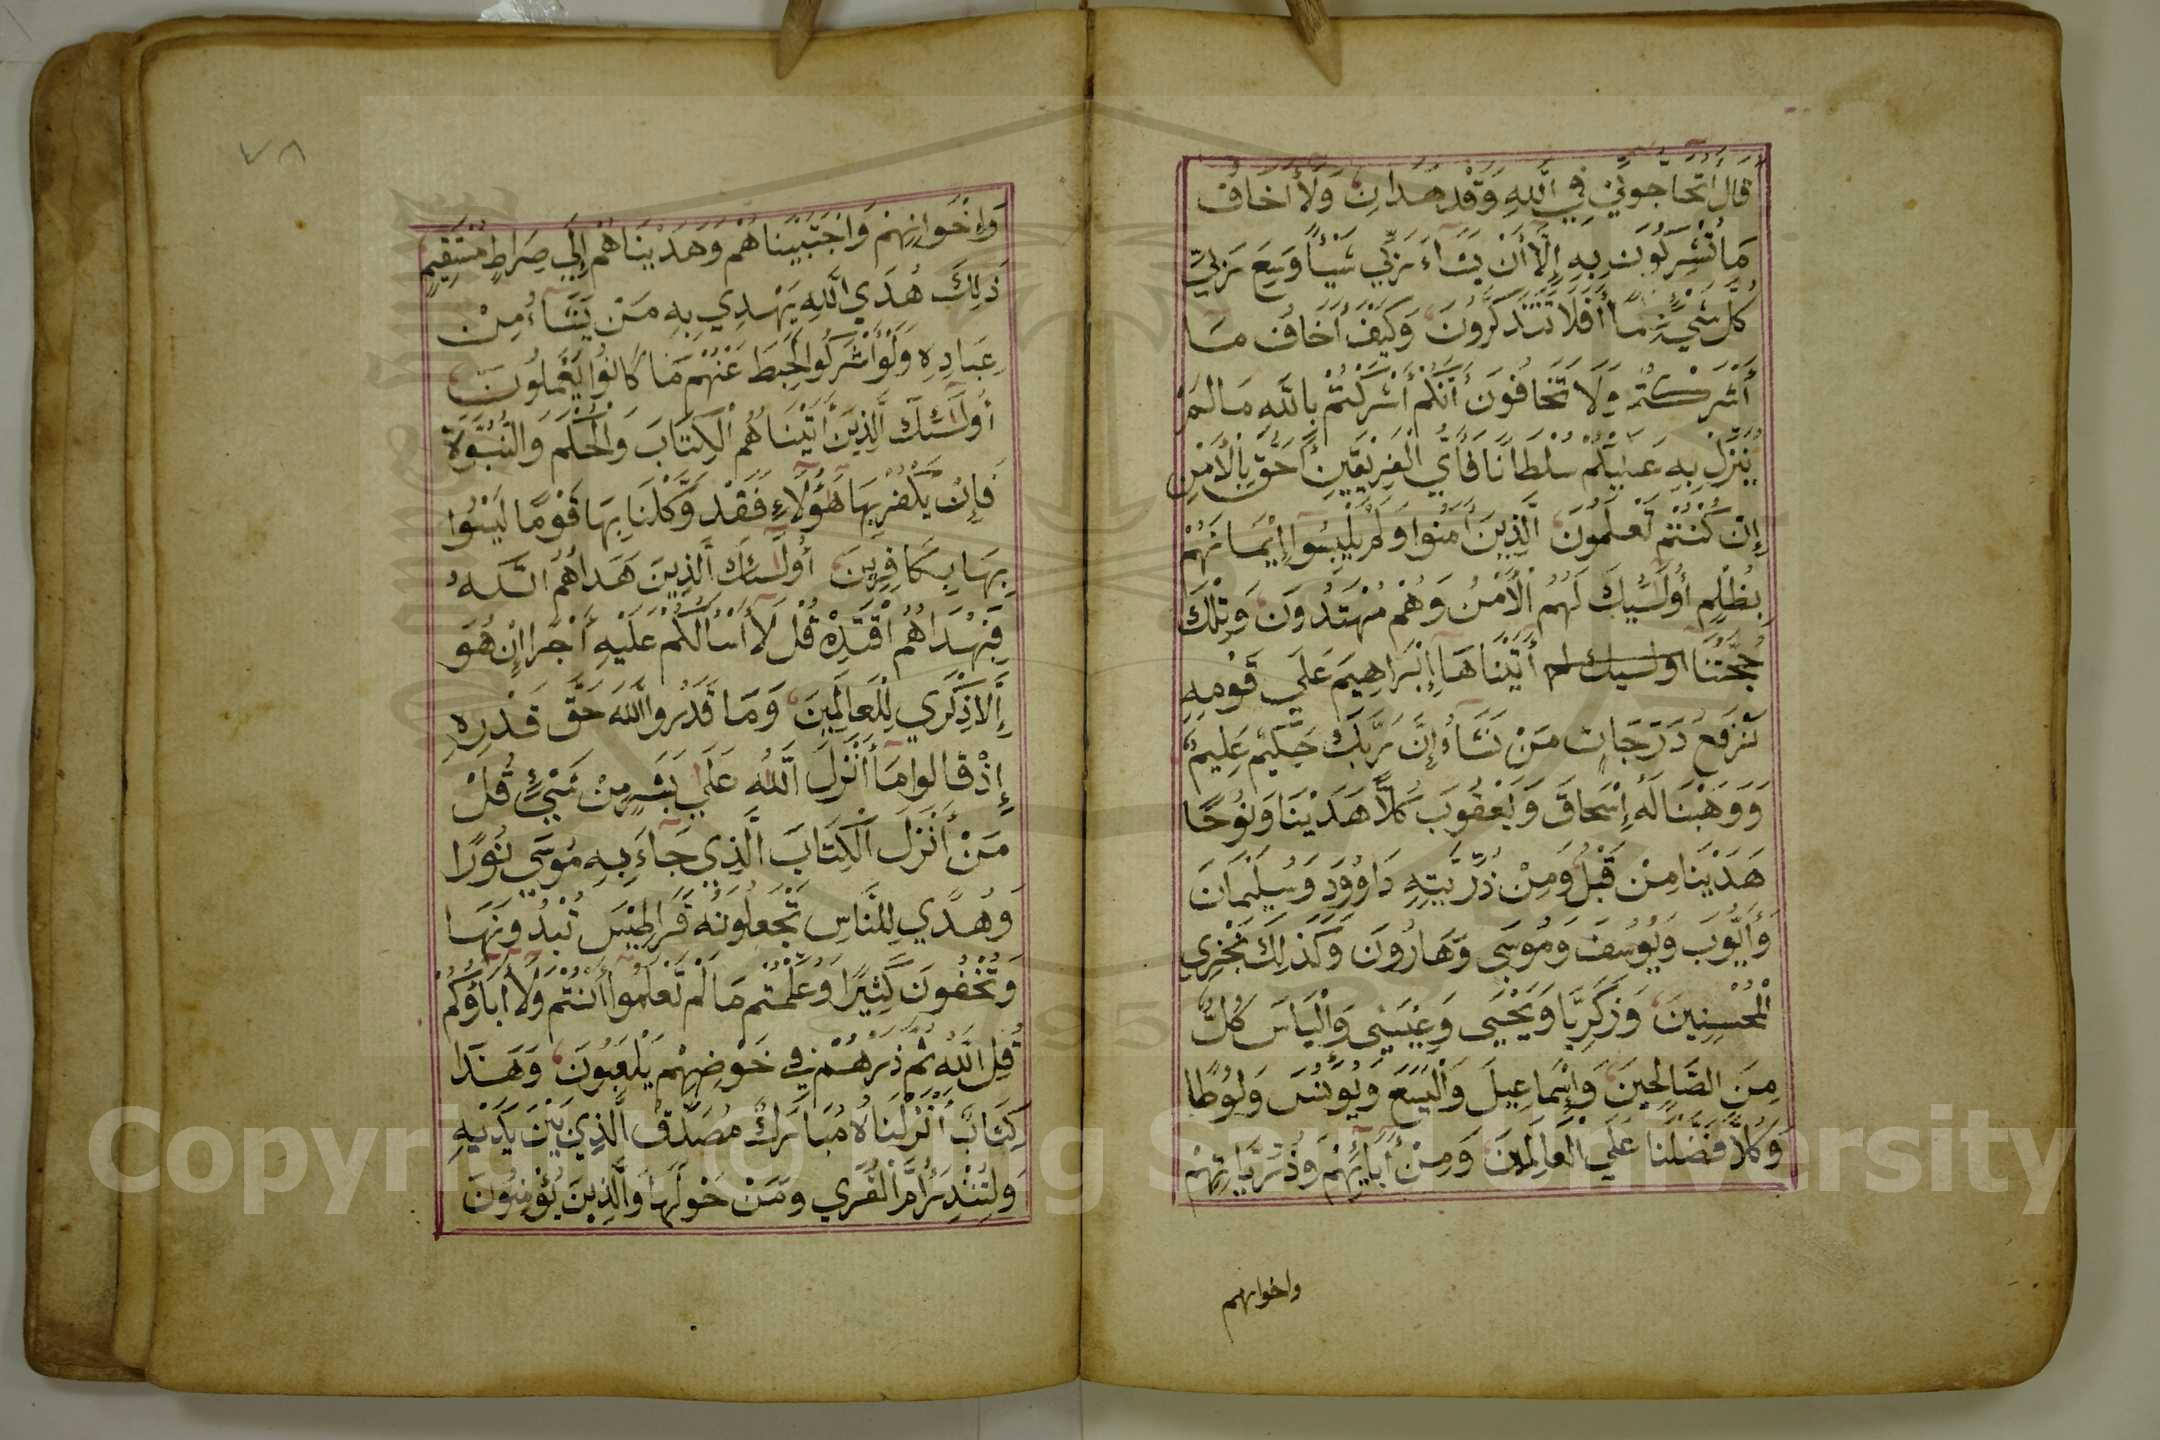 قَالَ أَتُحَاجُّونِّي فِي اللَّهِ وَقَدْ هَدَانِ وَلَا أَخَافُ
مَا تُشْرِكُونَ بِهِ إِلَّا أَنْ يَشَآءَ رَبِّي شَيْأً وَسِعَ رَبِّي
كُلَّ شَيْءٍ عِلْمًا أَفَلَا تَتَذَكَّرُونَ وَكَيْفَ أَخَافُ مَا
أَشْرَكْتُمْ وَلَا تَخَافُونَ أَنَّكُمْ أَشْرَكْتُمْ بِاللَّهِ مَا لَمْ
يُنَزِّلْ بِهِ عَلَيْكُمْ سُلْطَانًا فَأَيُّ الْفَرِيقَيْنِ أَحَقُّ بِالْأَمْنِ
إِنْ كُنْتُمْ تَعْلَمُونَ الَّذِينَ أَمَنُوا وَلَمْ يَلْبِسُوا إِيْمَانَهُمْ
بِظُلْمٍ أُولَٓئِكَ لَهُمُ الْأَمْنُ وَهُمْ مُهْتَدُونَ وَتِلْكَ
حُجَّتُنَا اولئيك لهم أَتَيْنَاهَا إِبْرَاهِيمَ عَلَي قَوْمِهِ
نَرْفَعُ دَرَجَاتٍ مَنْ نَشَآءُ إِنَّ رَبَّكَ حَكِيْمٌ عَلِيمٌ
وَوَهَبْنَا لَهُ إِسْحَاقَ وَيَعْقُوبَ كُلًّا هَدَيْنَا وَنُوحًا
هَدَيْنَا مِنْ قَبْلُ وَمِنْ ذُرِّيَّتِهِ دَاوُودَ وَسُلَيْمَانَ
وَأَيُّوبَ وَيُوسُفَ وَمُوسَي وَهَارُونَ وَكَذَلِكَ نَجْزِي
الْمُحْسِنِينَ وَزَكَرِيَّا وَيَحْيَي وَعِيْسَي وَالْيَاسَ كُلٌّ
مِنَ الصَّالِحِينَ وَإِسْمَاعِيلَ وَالْيَسَعَ وَيُونُسَ وَلُوطًا
وَكُلًّا فَضَّلْنَا عَلَي الْعَالَمِينَ وَمِنْ أَبَآئِهِمْ وَذُرِّيَّاتِهِمْ
واخوانهم
٧٨
وَإِخْوَانِهِمْ وَاجْتَبَيْنَاهُمْ وَهَدَيْنَاهُمْ إِلَي صِرَاطٍ مُسْتَقِيمٍ
ذَلِكَ هُدَي اللَّهِ يَهْدِي بِهِ مَنْ يَشَآءُ مِنْ
عِبَادِهِ وَلَوْ أَشْرَكُوا لَحَبِطَ عَنْهُمْ مَا كَانُوا يَعْمَلُونَ
أُولَٓئِكَ الَّذِينَ أَتَيْنَاهُمُ الْكِتَابَ وَالْحُكْمَ وَالنُّبُوَّةَ
فَإِنْ يَكْفُرْ بِهَا هَؤُلَآءِ فَقَدْ وَكَّلْنَا بِهَا قَوْمًا لَيْسُوا
بِهَا بِكَافِرِينَ أُولَٓئِكَ الَّذِينَ هَدَاهُمُ اللَّهُ
فَبِهُدَاهُمُ اقْتَدِهْ قُلْ لَا أَسْأَلُكُمْ عَلَيْهِ أَجْرًا إِنْ هُوَ
إِلَّا ذِكْرَي لِلْعَالَمِينَ وَمَا قَدَرُوا اللَّهَ حَقَّ قَدْرِهِ
إِذْ قَالُوا مَا أَنْزَلَ اللَّهُ عَلَي بَشَرٍ مِنْ شَيْءٍ قُلْ
مَنْ أَنْزَلَ الْكِتَابَ الَّذِي جَآءَ بِهِ مُوسَي نُورًا
وَهُدًي لِلنَّاسِ تَجْعَلُونَهُ قَرَاطِيْسَ تُبْدُونَهَا
وَتُخْفُونَ كَثِيْرًا وَعُلِّمْتُمْ مَا لَمْ تَعْلَمُوا أَنْتُمْ وَلَا أَبَاؤُكُمْ
قُلِ اللَّهُ ثُمَّ ذَرْهُمْ فِي خَوْضِهِمْ يَلْعَبُونَ وَهَذَا
كِتَابٌ أَنْزَلْنَاهُ مُبَارَكٌ مُصَدِّقُ الَّذِي بَيْنَ يَدَيْهِ
وَلِتُنْذِرَ أُمَّ الْقُرَي وَمَنْ حَوْلَهَا وَالَّذِينَ يُؤْمِنُونَ
Copyright © King Saud University